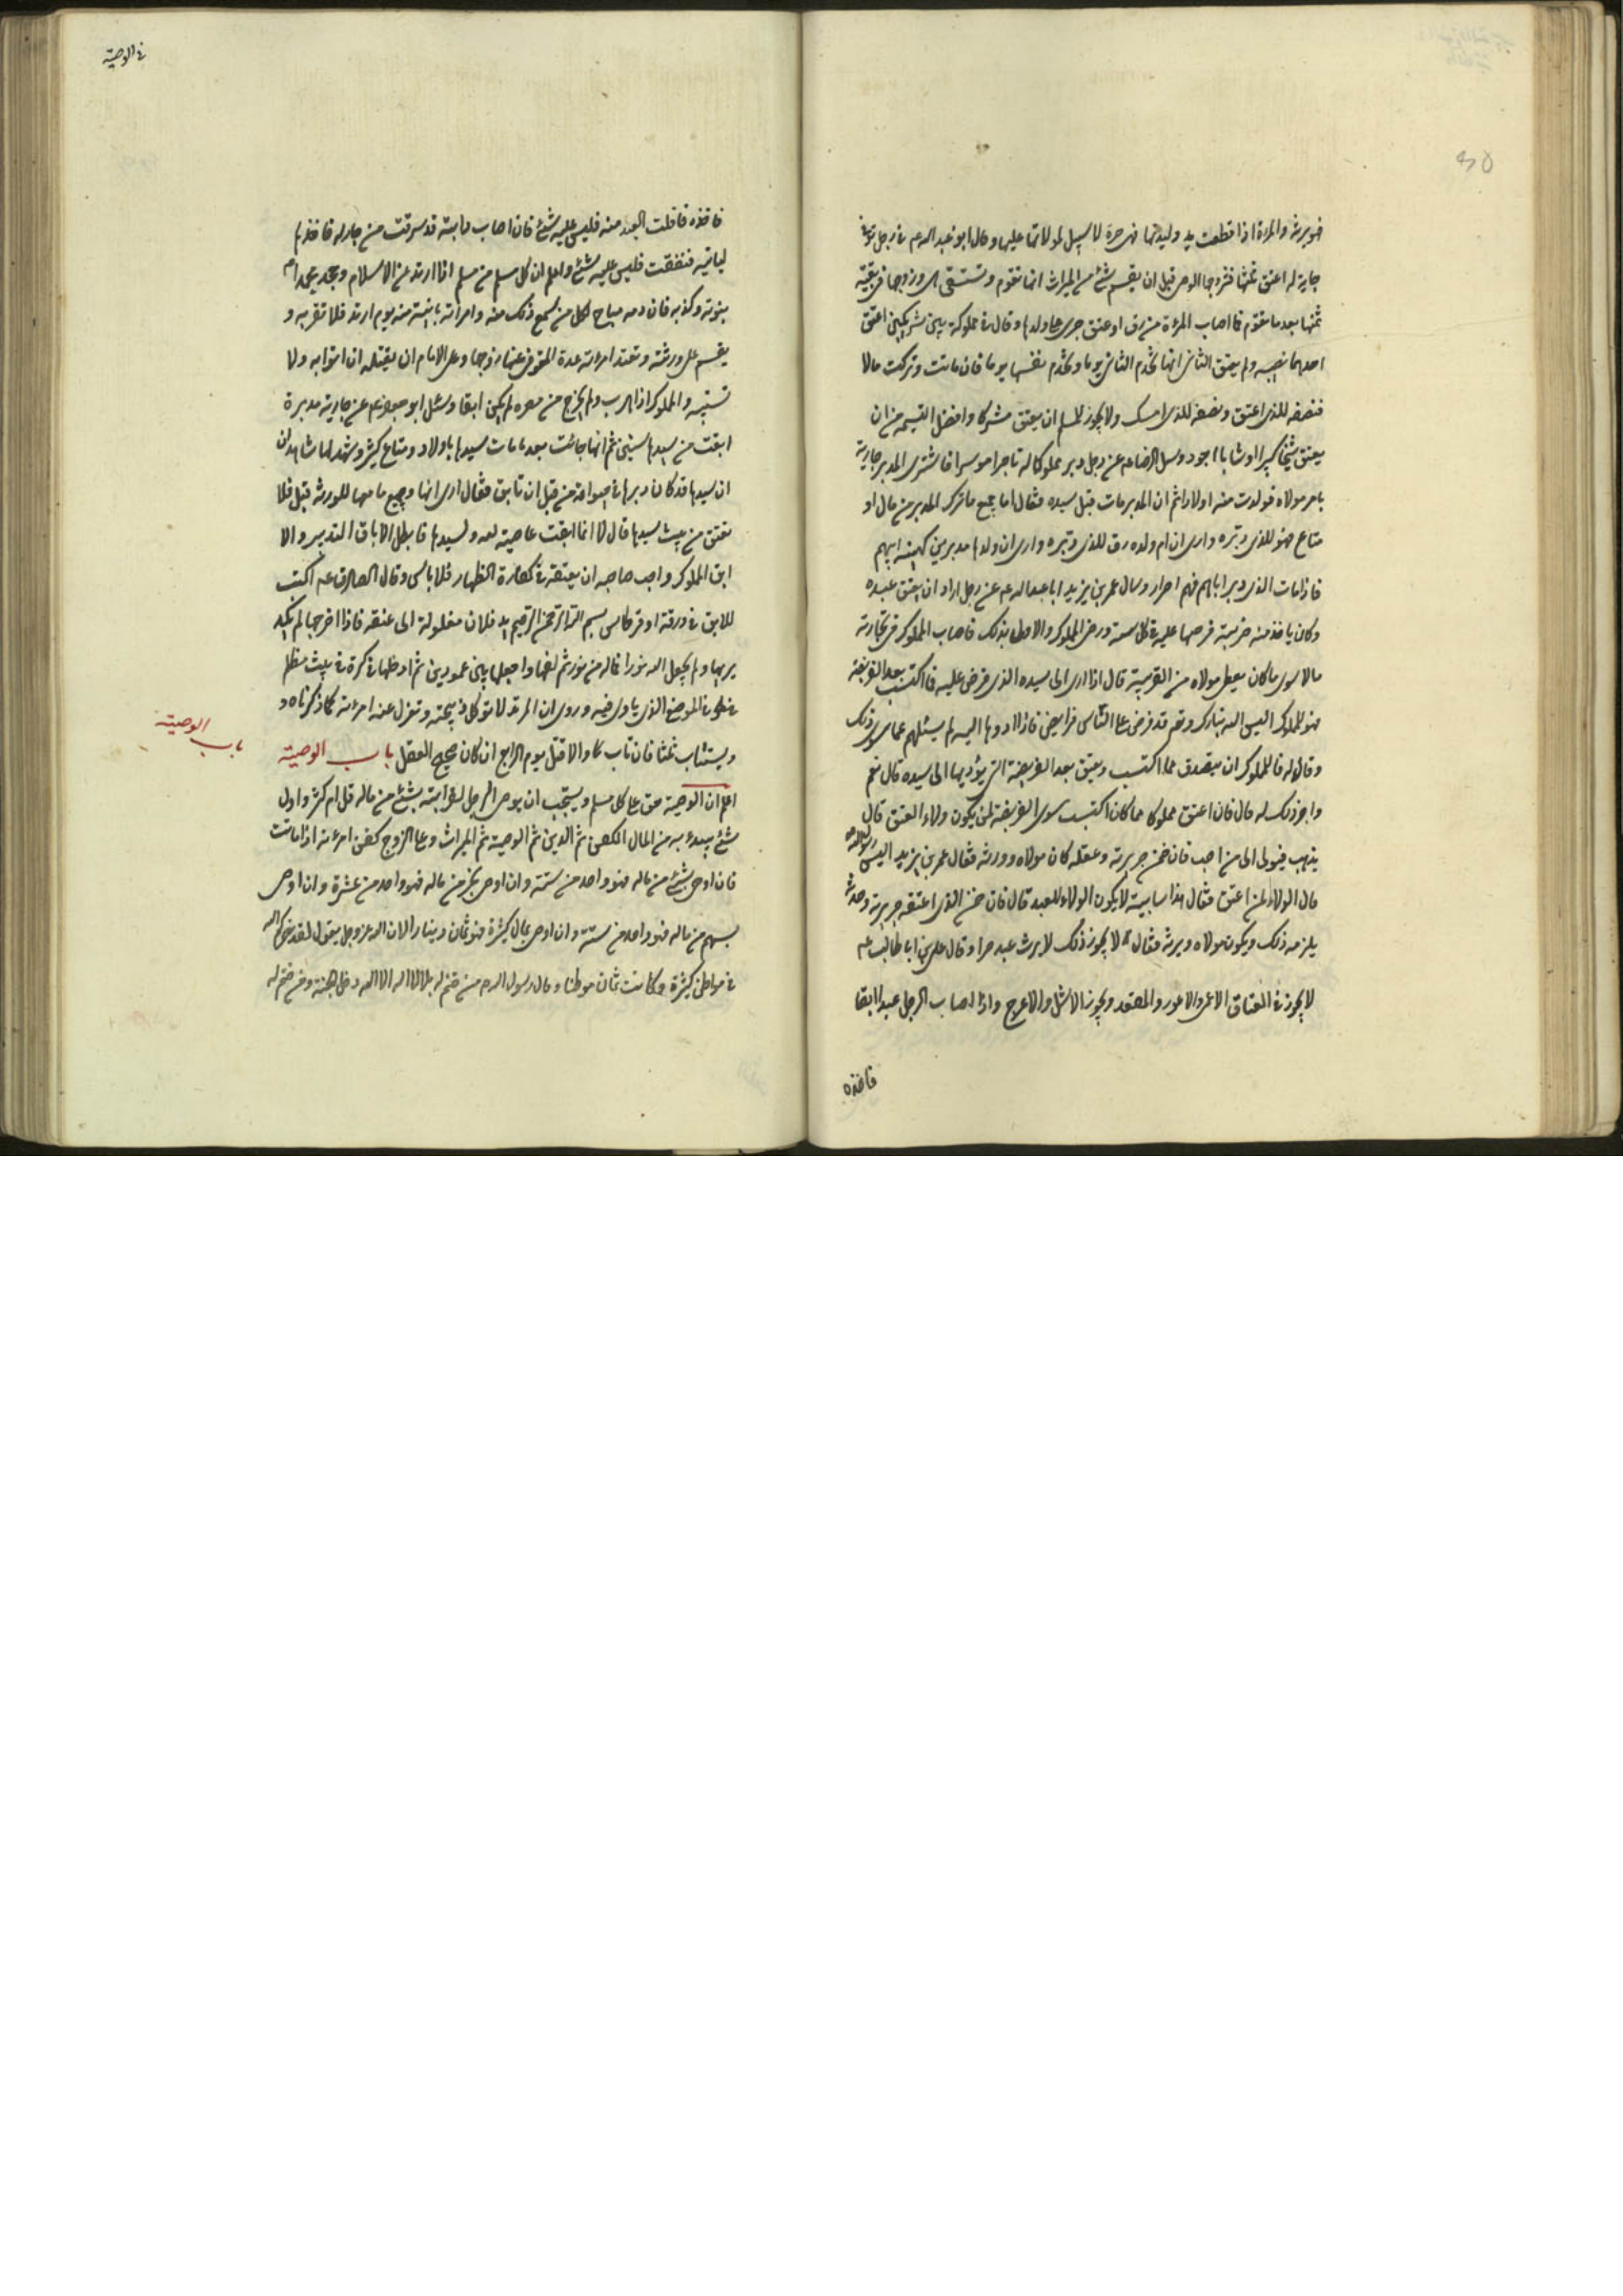 فهو يرثه والمراة اذا قطعت يد وليدتها فهى حرة لا سبيل لمولاتها عليها وقال ابو عبد الله عم فى رجل توفى
جارية له اعتق ثلثها فتزوجها الوصى قبل ان يقسم شئ من الميراث انها تقوم وتستسقى هى وزوجها فى بقية
ثمنها بعد ما تقوم فما اصاب المرءة من رق او عتق جرى على ولدها وقال فى مملوكة بين شريكين اعتق
احدهما نصيبه ولم يعتق الثانى انها تخدم الثانى يوما وتخدم نفسها يوما فان ماتت وتركت مالا
فنصفه للذى اعتق ونصفه للذى امسك ولا يجوز للمسلم ان يعتق مشركا وافضل القسمة من ان
يعتق شيخا كبيرا او شابا اجرد وسئل الرضا عم عن رجل دبر مملوكا له تاجرا موسرا فاشترى المدبر جارية
بامر مولاه فولدت منه اولادا ثم ان المدبر مات قبل سيده فقال اما جميع ما ترك المدبر من مال او
متاع فهو للذى دبره وارى ان ام ولده رق للذى دبره وارى ان ولدها مدبرين كهيئة ابيهم
فاذا مات الذى دبر اباهم فهم احرار وسال عمر بن يزيد ابا عبد الله عم عن رجل اراد ان يعتق عبده
وكان ياخذ منه ضريبة فرضها عليه فى كل سنة ورضى المملوك والاصل بذلك فاصاب المملوك فى تجارته
مالا سوى ما كان يعطى مولاه من الضريبة قال اذا ادى الى سيده الذى فرض عليه فما اكتسب بعد الفريضة
فهو للمملوك اليس الله تبارك وتعم قد فرض على الناس فرايض فاذا ادوها اليه لم يسئلهم عما سوى ذلك
وقال له فالمملوك ان يتصدق مما اكتسب ويعتق بعد الفريضة التى يؤديها الى سيده قال نعم
واجر ذلك له قال فان اعتق مملوكا مما كان اكتسب سوى الفريضة لمن يكون ولاء العتق قال
يذهب فيولى الى من احب فان ضمن جريرته وعقله كان مولاه وورثه فقال عمر بن يزيد اليس رسول الله ص
قال الولاء لمن اعتق فقال هذا سايبة لا يكون الولاء للعبد قال فان ضمن الذى اعتقه جريرته وحدثه
يلزمه ذلك ويكون مولاه ويرثه فقال لا يجوز ذلك لا يرث عبد حرا وقال على بن ابى طالب عم
لا يجوز فى العتاق الاعمى والاعور والمقعد ويجوز الاشل والاعرج واذا اصاب الرجل عبدا ابقا
فاخذه
فى الوصية
فاخذه فافلت العبد منه فليس عليه شئ فان اصاب دابة قد سرقت من جار له فاخذها
لياتيه فنفقت فليس عليه شئ واعلم ان كل مسلم من مسلم اذا ارتد عن الاسلام وجحد محمدا صم
بنوته وكذبه فان دمه مباح لكل من سمع ذلك منه وامراته باينة منه يوم ارتد فلا تقربه و
يقسم على ورثته وتعتد امراته عدة المتوفى عنها زوجها وعلى الامام ان يقتله ان اتوا به ولا
يستتيبه والمملوك اذا هرب ولم يخرج من مصره لم يكن ابقا وسئل ابو جعفر عم عن جارية مدبرة
ابقت من سيدها سنين ثم انها جائت بعد ما مات سيدها باولاد ومتاع كثير وشهد لها شاهدان
ان سيدها قد كان دبرها فى حياته من قبل ان تابق فقال ارى انها وجميع ما معها للورثة قيل فلا
تعتق من ثلث سيدها قال لا انها ابقت عاصية لله ولسيدها فابطل الاباق التدبير والا
ابق المملوك واحب صاحبه ان يعتقه فى كفارة الظهار فلا باس وقال الصادق عم اكتب
للابق فى ورقة او قرطاس بسم الله الرحمن الرحيم يد فلان مغلولة الى عنقه فاذا اخرجها لم يكد
يريها ولم يجعل الله نورا فما له من نور ثم لفها واجعلها بين عمودين ثم ادخلها فى كرة فى بيت مظلم
فى الموضع الذى ياوى فيه وروى ان المرتد لا توكل ذبيحته وتعزل عنه امرءته كما ذكرناه و
ويستتاب ثلثا فان تاب والا قتل يوم الرابع ان كان صحيح العقل باب الوصية
باب الوصية
اعلم ان الوصية حق على كل مسلم ويستحب ان يوصى الرجل لقرابته بشئ من ماله قل ام كثر واول
شئ يبدء به من المال الكفن ثم الدين ثم الوصية ثم الميراث وعلى الزوج كفن امرءته اذا ماتت
فان اوصى بشئ من ماله فهو واحد من ستة وان اوصى بجزء من ماله فهو واحد من عشرة وان اوصى
بسهم من ماله فهو واحد من ستة وان اوصى بمال كثيرة فهو ثمان دينار الان الله عز وجل يقول لقد نصركم الله
فى مواطن كثيرة وكانت ثمان موطنا وقال رسول الله ص من ختم له بلا اله الا الله دخل الجنة ومن ختم له